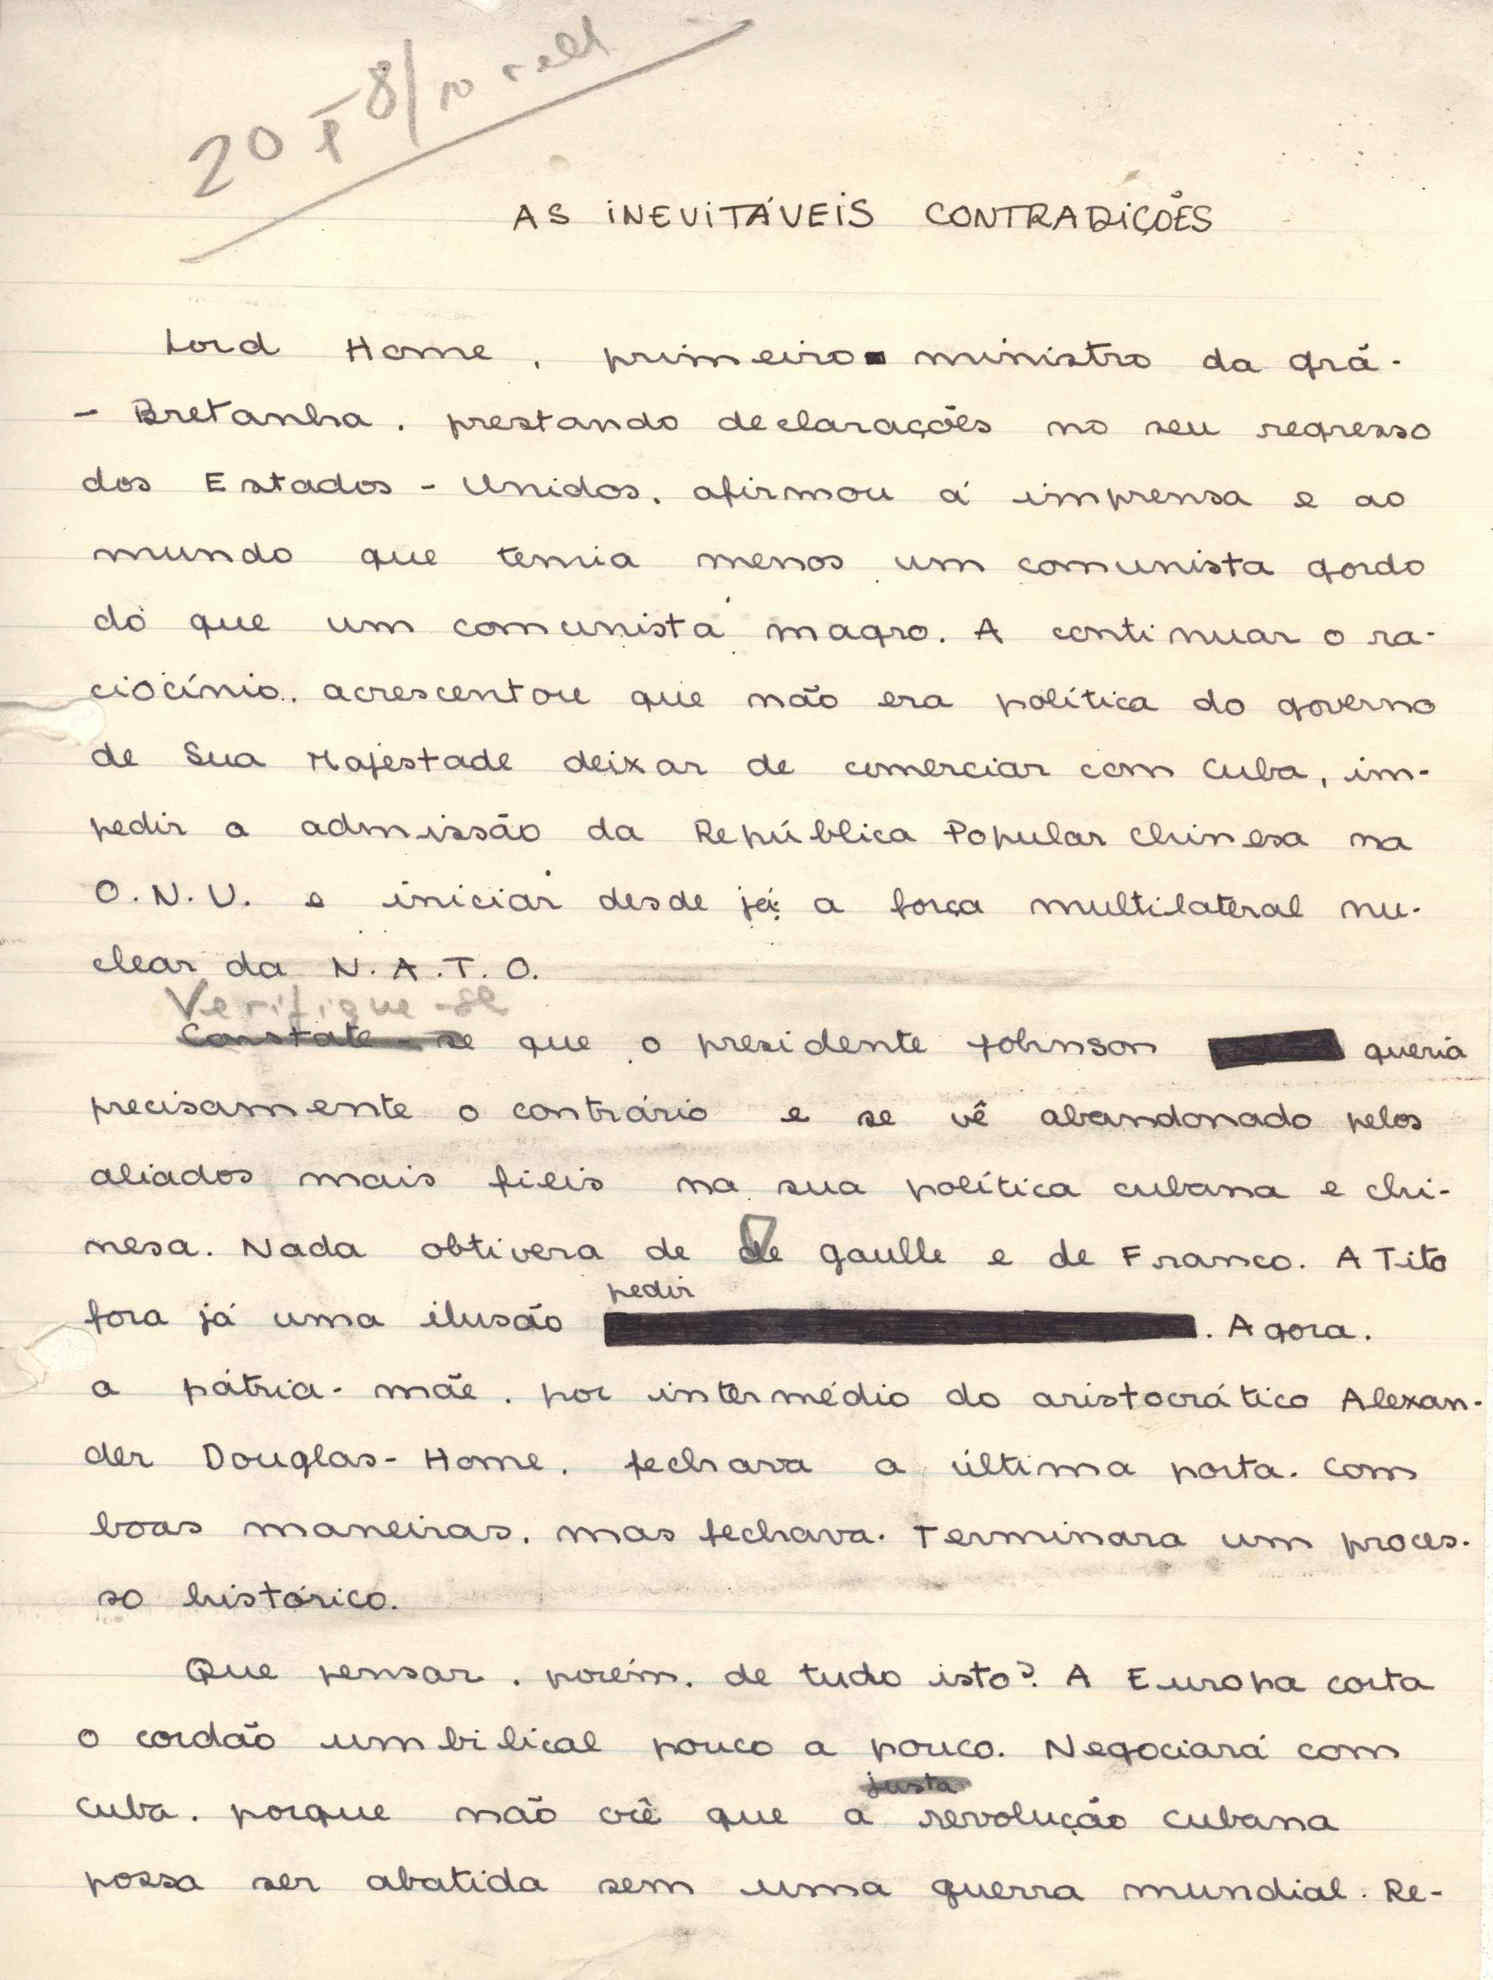 20 x 8/10
AS INEVITÁVEIS CONTRADIÇÕES
Lord Home, primeiro ministro da Grã-
-Bretanha, prestando declarações no seu regresso
dos Estados-Unidos, afirmou á imprensa e ao
mundo que temia menos um comunista gordo
do que um comunista magro. A continuar o ra-
ciocínio, acrescentou que não era política do governo
de Sua Majestade deixar de comerciar com Cuba, im-
pedir a admissão da República Popular Chinesa na
O.N.U. e iniciar desde já a força multilateral nu-
clear da N.A.T.O.
Verifique-se
Constate-se que o presidente Johnson queria
precisamente o contrário e se vê abandonado pelos
aliados mais fieis na sua política cubana e chi-
nesa. Nada obtivera de de Gaulle e de Franco. A Tito
pedir
fora já uma ilusão. Agora,
a pátria-mãe, por intermédio do aristocrático Alexan-
der Douglas-Home, fechava a última porta. Com
boas maneiras, mas fechava. Terminara um proces-
so histórico.
Que pensar, porém, de tudo isto? A Europa corta
o cordão umbilical pouco a pouco. Negociará com
justa
Cuba, porque não crê que a revolução cubana
possa ser abatida sem uma guerra mundial. Re-